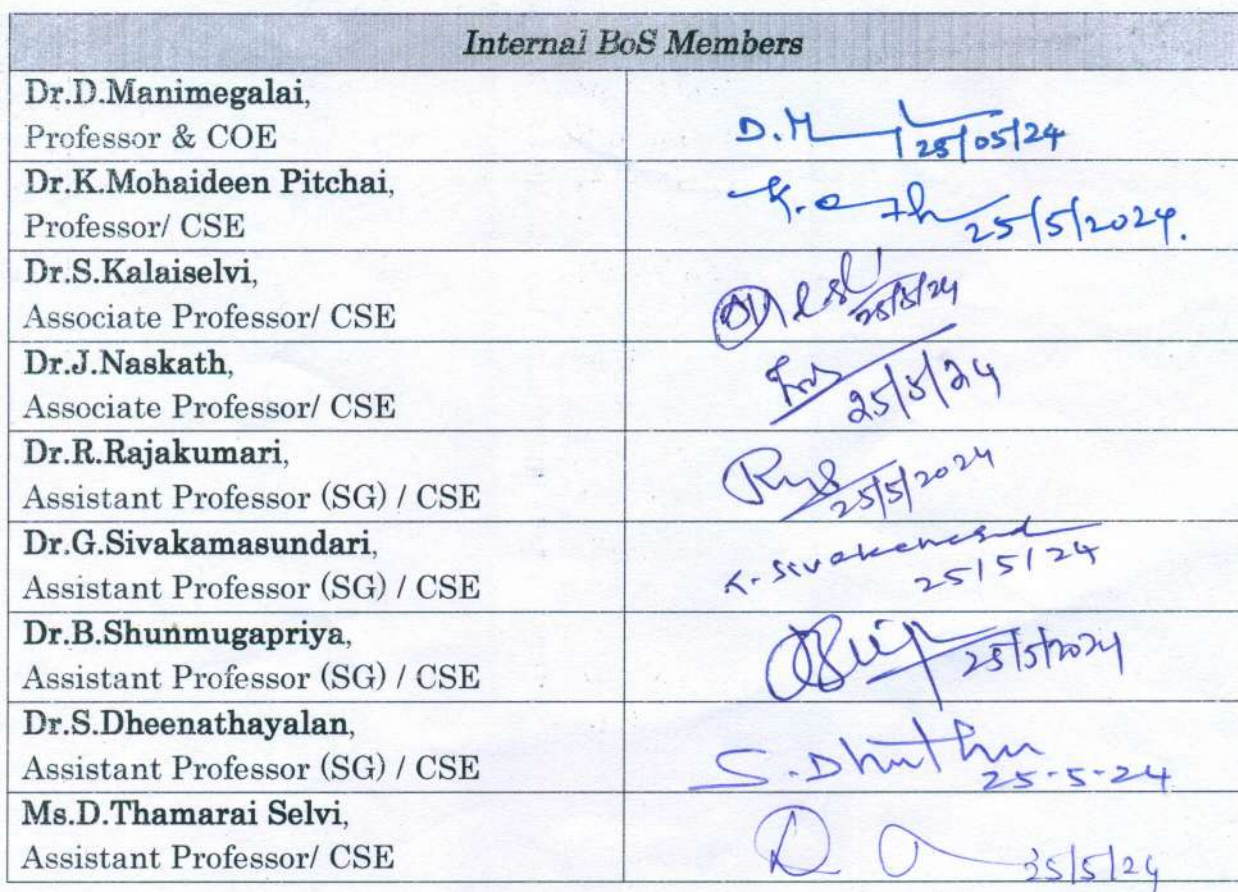 Internal BoS Members
Dr.D.Manimegalai,
Professor & COE
D.M 25/05/24
Dr.K.Mohaideen Pitchai,
Professor/ CSE
25/5/2024.
Dr.S.Kalaiselvi,
Associate Professor/ CSE
25/5/24
Dr.J.Naskath,
Associate Professor/ CSE
25/5/24
Dr.R.Rajakumari,
Assistant Professor (SG) / CSE
25/5/2024
Dr.G.Sivakamasundari,
Assistant Professor (SG) / CSE
25/5/24
Dr.B.Shunmugapriya,
Assistant Professor (SG) / CSE
25/5/2024
Dr.S.Dheenathayalan,
Assistant Professor (SG) / CSE
25-5-24
Ms.D.Thamarai Selvi,
Assistant Professor/ CSE
25/5/24